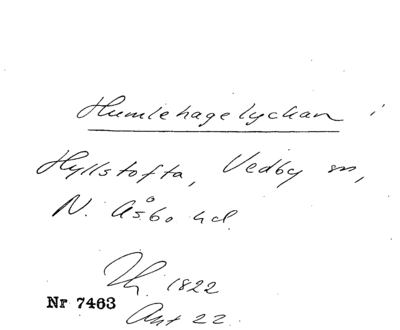 Humlehagelyckan i
Hyllstofta, Vedby sn,
N. Åsbo hd.
1822
Nr 7463
Akt 22.